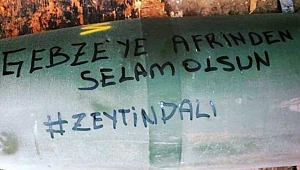 GEBZE'YE AFRINDEN
SELAM OLSUN
#ZEYTİNDALI